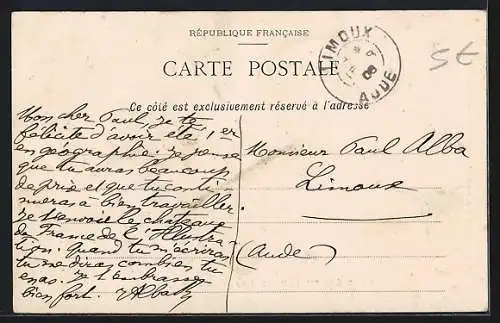 RÉPUBLIQUE FRANÇAISE
CARTE POSTALE
Ce côté est exclusivement réservé à l'adresse
LIMOUX
AUDE
Mon cher Paul, je te
félicite d'avoir été 1er
en géographie. Je pense
que tu auras beaucoup
de prix et que tu conti
nueras à bien travailler.
Je t'envoie le château
de France de l'Illustra
tion. Quand tu m'écriras
tu me diras combien tu
en as. Je t'embrasse
bien fort.
Monsieur Paul Alba
Limoux
(Aude)